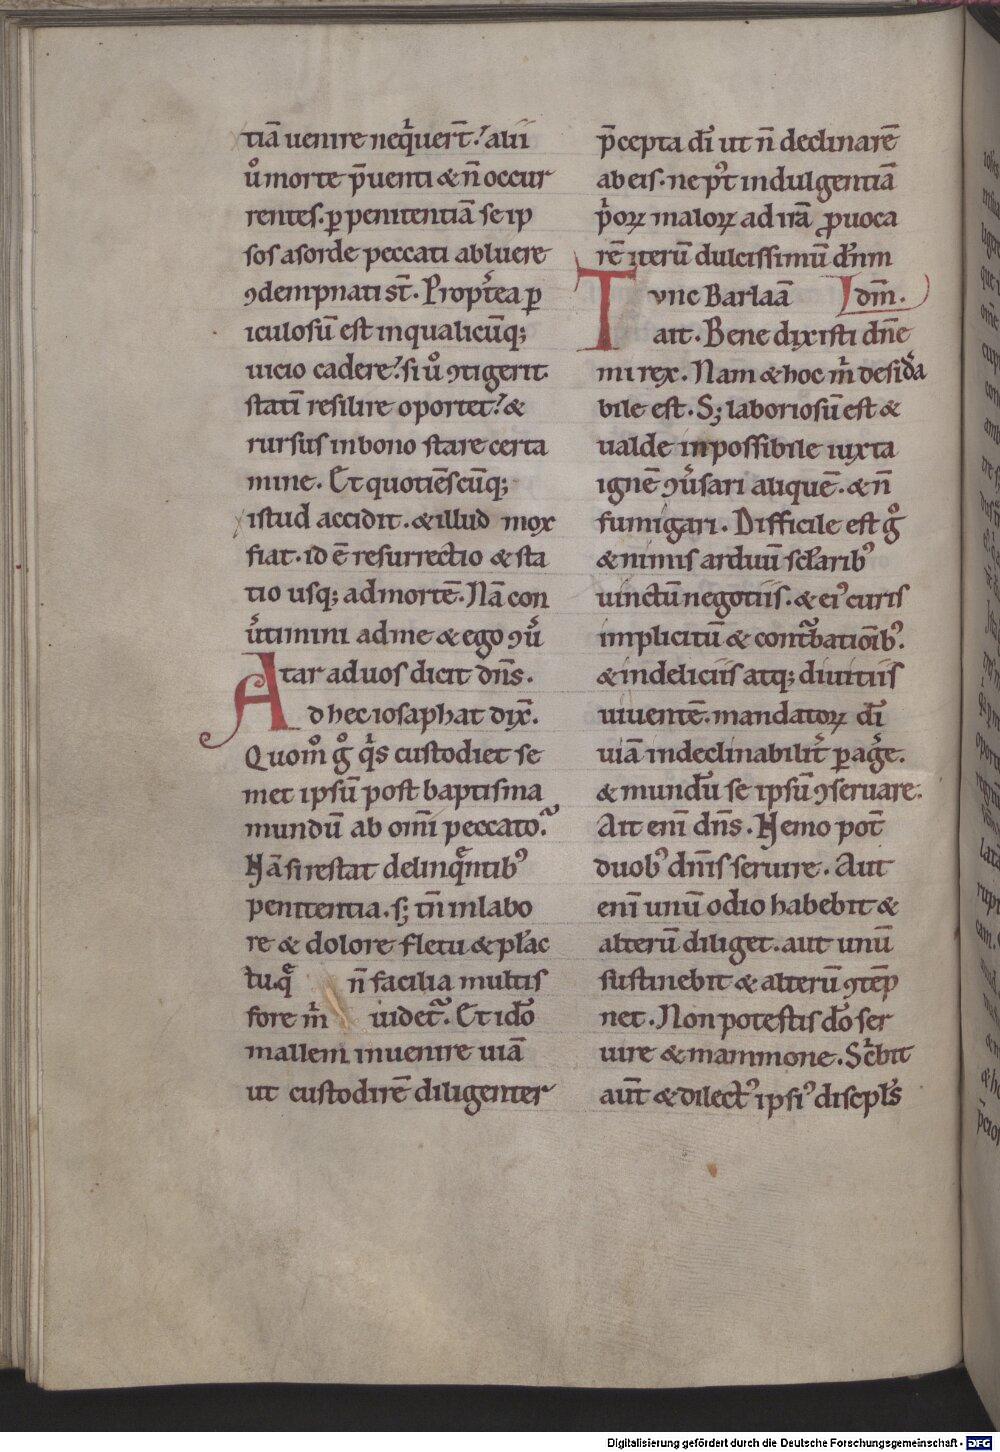 tiā uenire neq̍uer̄t.ʼ alii
ůmorte p̄uenti &n̄ occur
rentes. ꝑ penitentiā se ip
sos asorde peccati abluere
ꝯdempnati st̄. Propt̾ea p
iculosū est inqualicūq;
uicio cadere.ʼ si ů ꝯtigerit.
statī resilire oportet.ʼ &
rursus inbono stare certa
mine. Et quotiēscūq;
istud accidit. &illud mox
fiat. id ē resurrectio & sta
tio usq; admortē. Nā con
u̾timini adme & ego ꝯu̾
tar aduos dicit dn̄s.
Ad hec iosaphat dix̄.
Quom̊ g̊ q̍s custodiet se
met ipsū post baptisma
mundū ab omī peccato.ʼ
Nā si restat delinqᷓntibꝰ
penitentia. s; tn̄ inlabo
re & dolore fletu & pl̓ac
tu. qᷓ n̄ facilia multis
fore m̍ uidet᷑. Et ido̓
mallem inuenire uiā
ut custodirē diligenter
p̄cepta dı̓ ut n̄ declinarē
ab eis. ne pꝰt indulgentiā
p̍oꝝ maloꝝ ad irā ꝓuoca
rē iterū dulcissimū d̓nm
Tvnc Barlaā dm̄.
ait. Bene dixisti dn̄e
mi rex. Nam & hoc m̍ desidᷓa
bile est. S; laboriosū est &
ualde inpossibile iuxta
ignē ꝯu̾sari aliquē. & n̄
fumigari. Difficile est g̊
& nimis arduū scl̓aribꝰ
uinctū negotiis. & eiꝰ curis
implicitū & cont᷑bationībꝰ.
& indeliciis atq; diuitiis
uiuentē. mandatoꝝ dı̓
uiā indeclinabilit̾ ꝑag̾e.
& mundū se ipsū ꝯseruare.
Ait enī dn̄s. Nemo pot̄
duobꝰ dn̄is seruire. Aut
enī unū odio habebit &
alterū diliget. aut unū
sustinebit & alterū ꝯtēp
net. Non potestis do̓ ser
uire & mammone. Sc̍bit
aut̄ & dilectꝰ ipsiꝰ discipl̓s
Digitalisierung gefördert durch die Deutsche Forschungsgemeinschaft - DFG